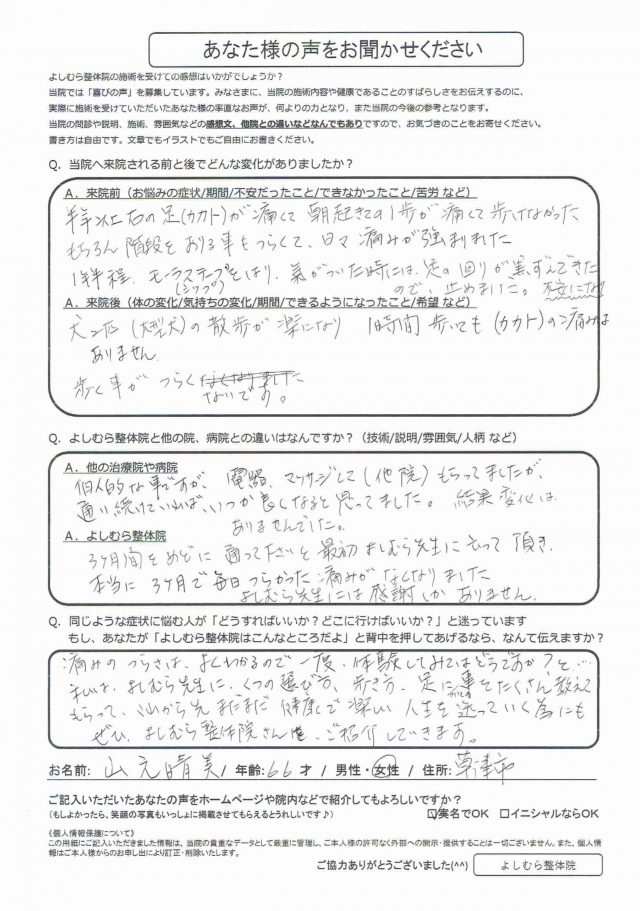 あなた様の声をお聞かせください
よしむら整体院の施術を受けての感想はいかがでしょうか？
当院では「喜びの声」を募集しています。みなさまに、当院の施術内容や健康であることのすばらしさをお伝えするのに、
実際に施術を受けていただいたあなた様の率直なお声が、何よりの力となり、また当院の今後の参考となります。
当院の問診や説明、施術、雰囲気などの感想文、他院との違いなどなんでもありですので、お気づきのことをお寄せください。
書き方は自由です。文章でもイラストでもご自由にお書きください。
Q. 当院へ来院される前と後でどんな変化がありましたか？
A. 来院前（お悩みの症状/期間/不安だったこと/できなかったこと/苦労 など）
半年以上右の足(カカト)が痛くて 朝起きての1歩が痛くて歩けなかった
もちろん階段をおりる事もつらくて、日々痛みが強まりました
1年半程、モーラステープをはり、気がついた時には、足の回りが黒ずんできた
(シップ)
ので、止めました。不安になり
A. 来院後（体の変化/気持ちの変化/期間/できるようになったこと/希望 など）
犬2匹(大型犬)の散歩が楽になり 1時間歩いても(カカト)の痛みは
ありません
歩く事がつらく
ないです。
Q. よしむら整体院と他の院、病院との違いはなんですか？（技術/説明/雰囲気/人柄 など）
A. 他の治療院や病院
個人的な事ですが、電器、マッサージして(他院)もらってましたが、
通い続けていればいつか良くなると思ってました。結果変化は
ありませんでした。
A. よしむら整体院
3ヶ月間をめどに通って下さいと最初よしむら先生にもって頂き、
本当に3ヶ月で毎日つらかった痛みがなくなりました
よしむら先生には感謝しかありません。
Q. 同じような症状に悩む人が「どうすればいいか？どこに行けばいいか？」と迷っています
もし、あなたが「よしむら整体院はこんなところだよ」と背中を押してあげるなら、なんて伝えますか？
痛みのつらさは、よくわかるので一度、体験してみてはどうですか？と…
私は、よしむら先生に、くつの選び方、歩き方、足に事をたくさん教えて
もらって、これから先まだまだ健康で楽しい人生を送っていく為にも
ぜひ、よしむら整体院さんを、ご紹介できます。
お名前: 山元晴美 / 年齢: 66才 / 男性・女性 / 住所: 草津市
ご記入いただいたあなたの声をホームページや院内などで紹介してもよろしいですか？
（もしよかったら、笑顔の写真もいっしょに掲載させてもらえるとうれしいです♪） ☑実名でOK □イニシャルならOK
《個人情報保護について》
この用紙にご記入いただきました情報は、当院の貴重なデータとして厳重に管理し、ご本人様の許可なく外部への開示・提供することは一切ございません。また、個人情
報はご本人様からのお申し出により訂正・削除いたします。
ご協力ありがとうございました(^^) よしむら整体院